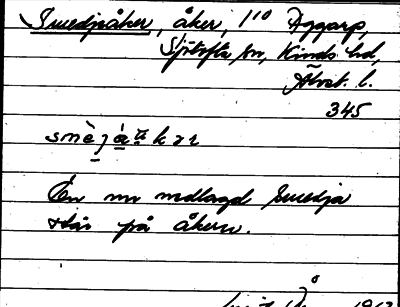 Smedjeåker, åker, 1¹⁰ Aggarp,
Sjötofta sn, Kinds hd,
Älvsb. l.
345
En nu nedlagd smedja
står på åkern.